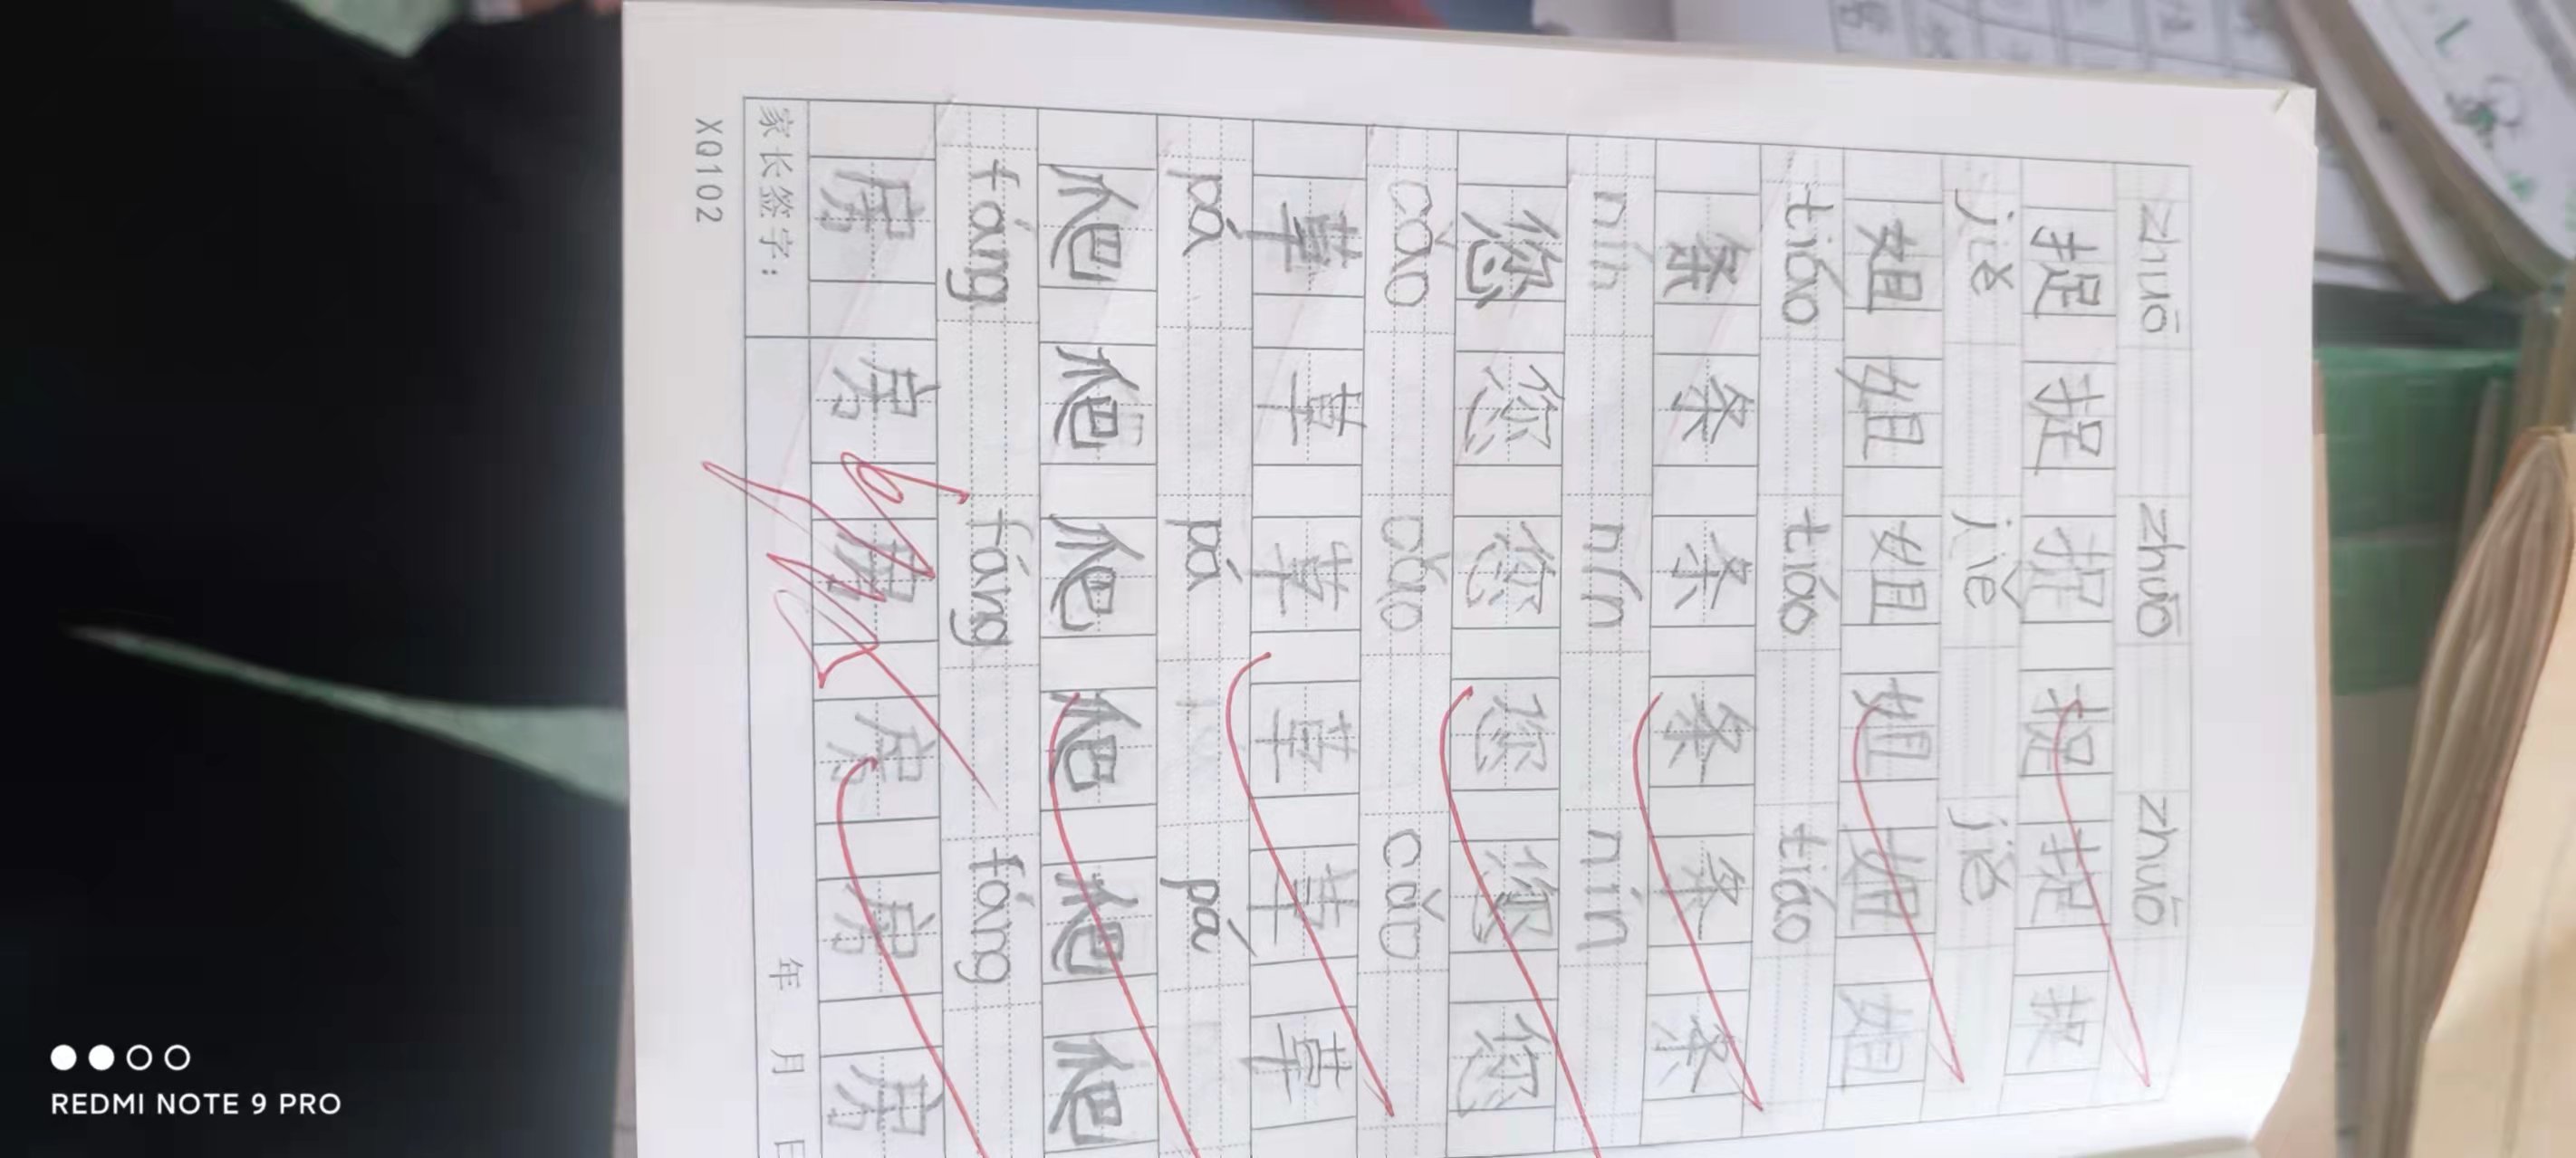 zhuō zhuō zhuō
捉 捉 捉 捉 捉 捉
jiě jiě jiě
姐 姐 姐 姐 姐 姐
tiáo tiáo tiáo
条 条 条 条 条 条
nín nín nín
您 您 您 您 您 您
cǎo cǎo cǎo
草 草 草 草 草 草
pá pá pá
爬 爬 爬 爬 爬 爬
fáng fáng fáng
房 房 房 房 房 房
家长签字: 年 月 日
XQ102
REDMI NOTE 9 PRO